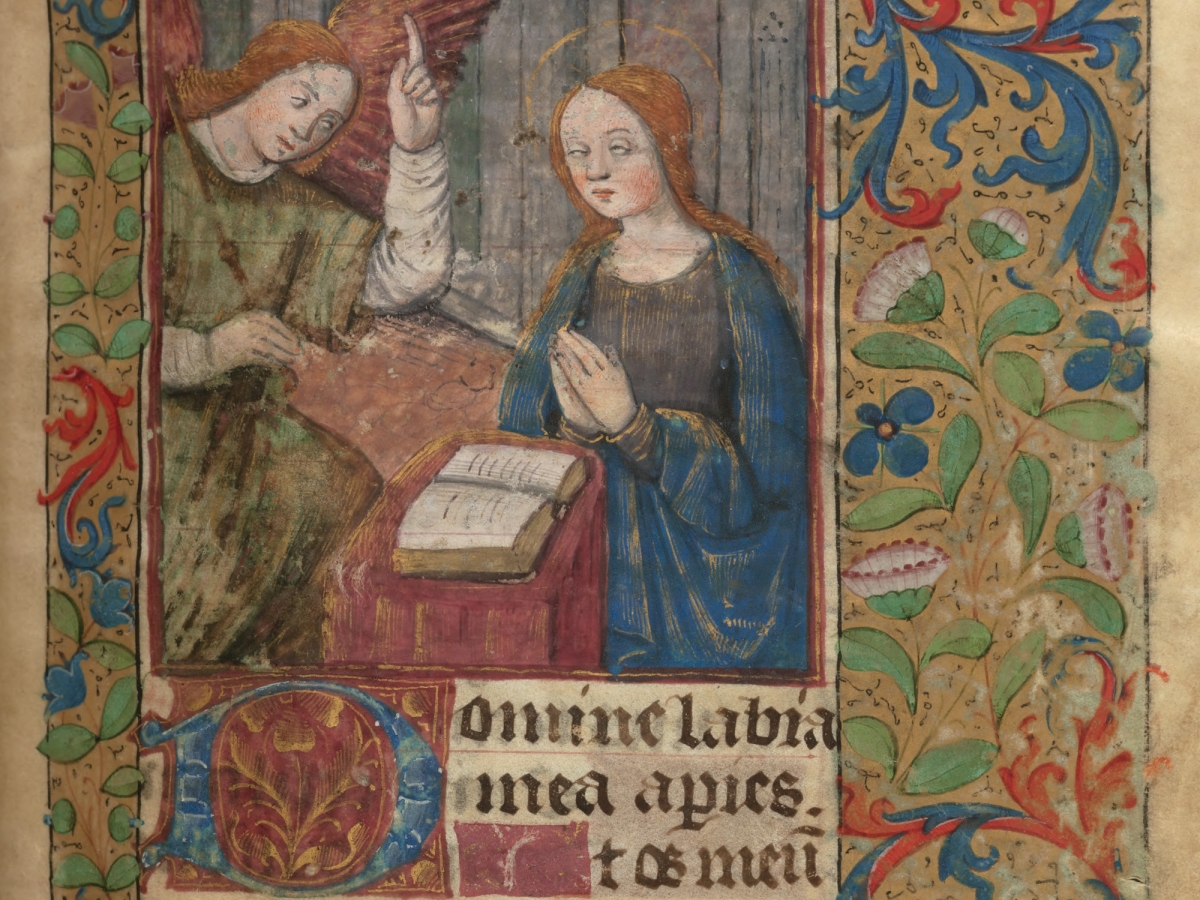 Domine labia
mea aꝑies.
Et os meū